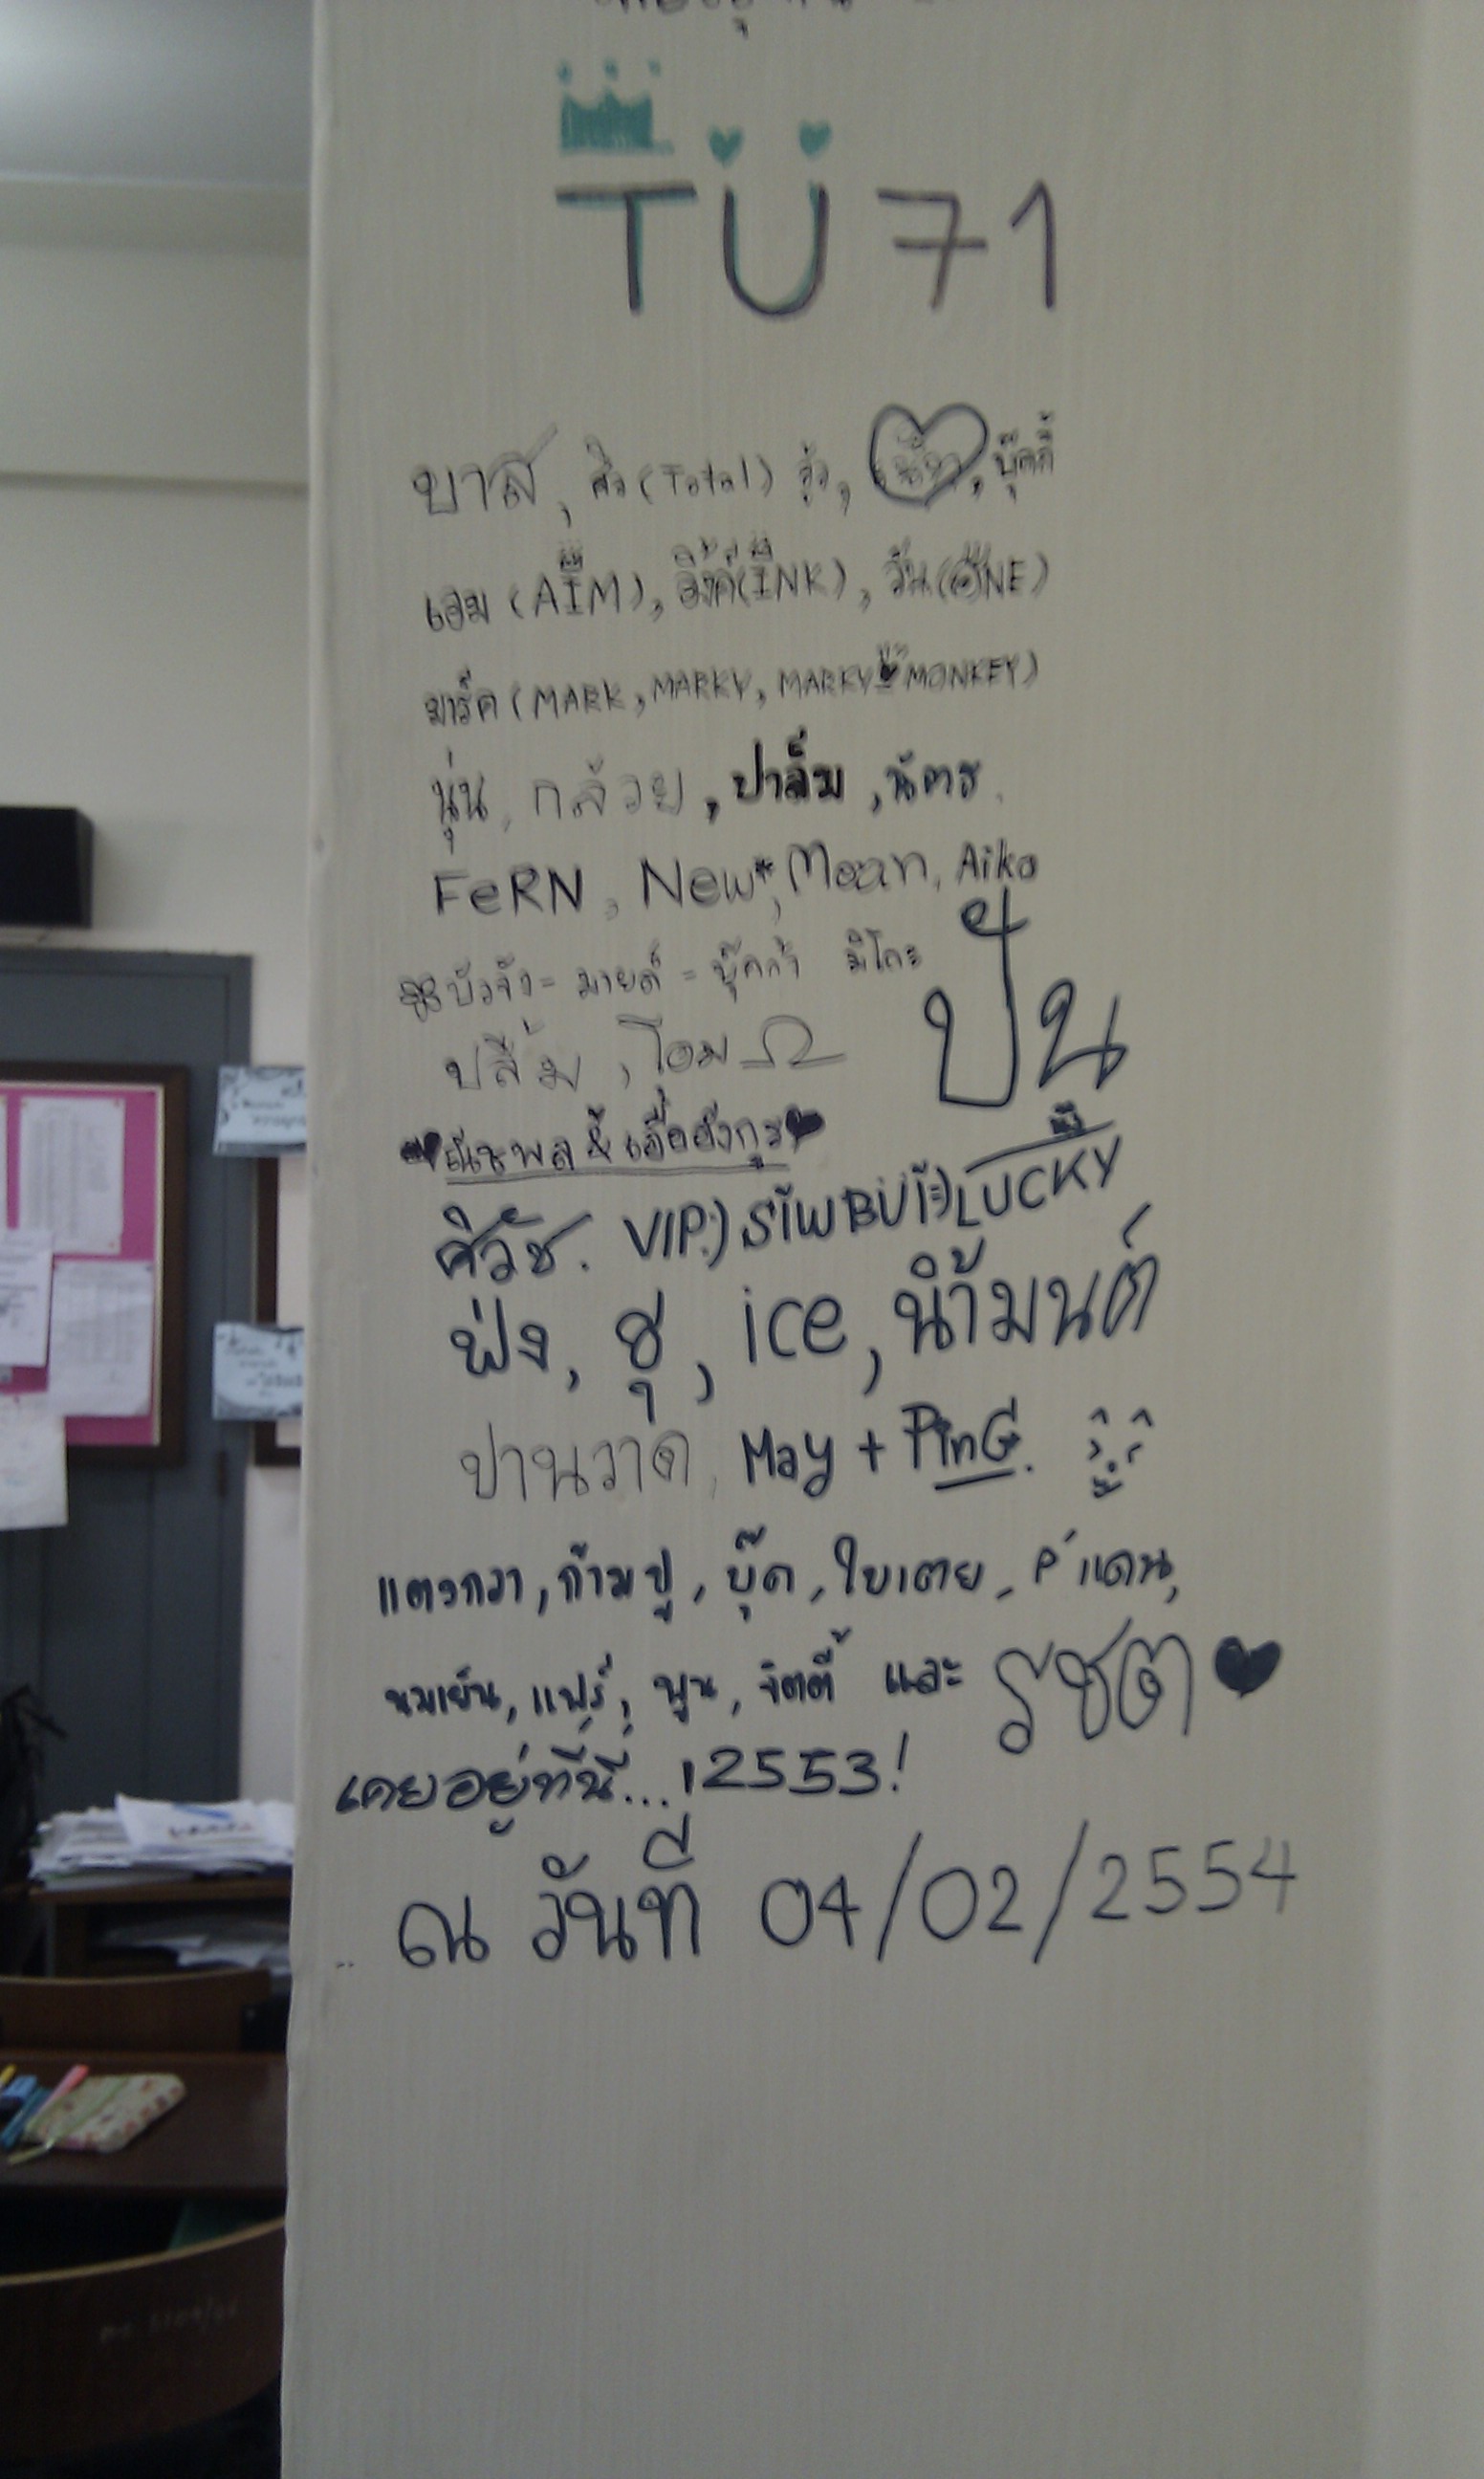 TU 71
บาส, ศิว (Total) วุ้ว, บุ๊คกี้
เอม (AIM), อิ้งค์ (INK), วัน (ONE)
มาร์ค (MARK, MARKY, MARKY MONKEY)
นุ่น, กล้วย, ปาล์ม, ฉัตร.
FeRN, New*, Mean, Aiko
บัวจัง = มายด์ = บุ๊คก้า มิโกะ
ปั้น
ปลื้ม, โอม Ω
ณัชพล & เอื้ออังกูร
ศิวัช. VIP:) SIWBUI:) LUCKY
ฟ่ง, ซุ, ice, น้ำมนต์
ปานวาด, May + PinG.
แตงกวา, ก้ามปู, บุ๊ค, ใบเตย, P'แดน,
นมเย็น, แฟร์, พูน, จิตตี้ และ รชต
เคยอยู่ที่นี่...! 2553!
ณ วันที่ 04/02/2554